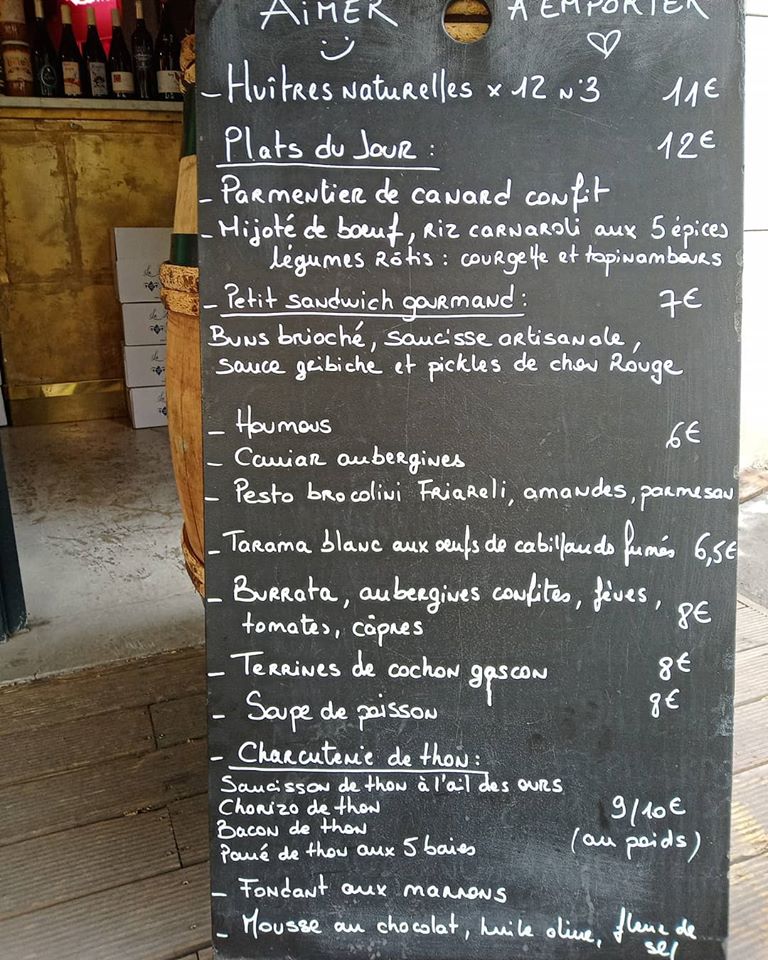 AIMER A EMPORTER
- Huîtres naturelles x 12 n°3 11€
Plats du Jour : 12€
- Parmentier de canard confit
- Mijoté de bœuf, riz carnaroli aux 5 épices
légumes rôtis : courgette et topinambours
- Petit sandwich gourmand : 7€
Buns brioché, saucisse artisanale,
sauce gribiche et pickles de chou rouge
- Houmous 6€
- Caviar aubergines
- Pesto brocolini Friareli, amandes, parmesan
- Tarama blanc aux œufs de cabillauds fumés 6,5€
- Burrata, aubergines confites, fèves,
tomates, câpres 8€
- Terrines de cochon gascon 8€
- Soupe de poisson 8€
- Charcuterie de thon :
Saucisson de thon à l'ail des ours
Chorizo de thon 9/10€
Bacon de thon
(au poids)
Pavé de thon aux 5 baies
- Fondant aux marrons
- Mousse au chocolat, huile olive, fleur de
sel